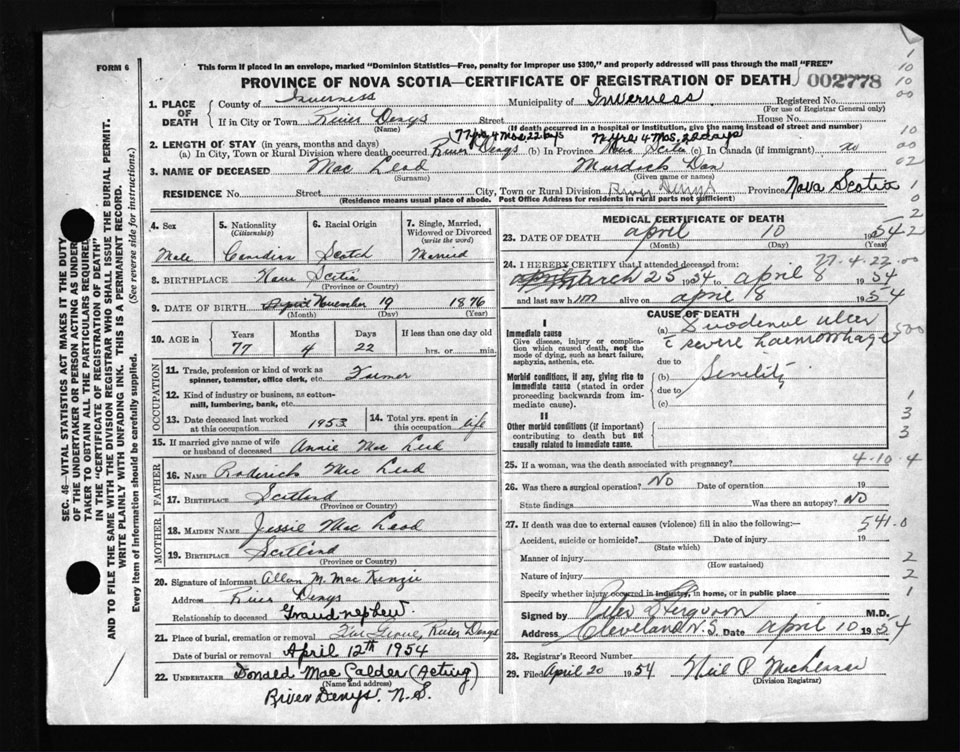 FORM 6
This form if placed in an envelope, marked "Dominion Statistics—Free, penalty for improper use $300," and properly addressed will pass through the mail "FREE"
PROVINCE OF NOVA SCOTIA—CERTIFICATE OF REGISTRATION OF DEATH 002778
1. PLACE OF DEATH County of Inverness Municipality of Inverness Registered No.
(For use of Registrar General only)
If in City or Town River Denys Street House No.
(Name) (If death occurred in a hospital or institution, give the name instead of street and number)
77 yrs 4 Mos 22 days 77 yrs 4 Mos. 22 days
2. LENGTH OF STAY (in years, months and days)
(a) In City, Town or Rural Division where death occurred River Denys (b) In Province Nova Scotia (c) In Canada (if immigrant) no
3. NAME OF DECEASED Mac Leod Murdick Dan
(Surname) (Given name or names)
RESIDENCE No. Street City, Town or Rural Division River Denys Province Nova Scotia
(Residence means usual place of abode. Post Office Address for residents in rural parts not sufficient)
4. Sex 5. Nationality (Citizenship) 6. Racial Origin 7. Single, Married, Widowed or Divorced (write the word)
Male Canadian Scotch Married
8. BIRTHPLACE Nova Scotia
(Province or Country)
9. DATE OF BIRTH November 19 1876
(Month) (Day) (Year)
10. AGE in Years Months Days If less than one day old
77 4 22 hrs. or min.
OCCUPATION
11. Trade, profession or kind of work as spinner, teamster, office clerk, etc. Farmer
12. Kind of industry or business, as cotton-mill, lumbering, bank, etc.
13. Date deceased last worked at this occupation 1953 14. Total yrs. spent in this occupation life
15. If married give name of wife or husband of deceased Annie Mac Leod
FATHER
16. NAME Roderick Mac Leod
17. BIRTHPLACE Scotland
(Province or Country)
MOTHER
18. MAIDEN NAME Jessie Mac Leod
19. BIRTHPLACE Scotland
(Province or Country)
20. Signature of informant Allan M. Mac Kenzie
Address River Denys
Relationship to deceased Grand nephew.
21. Place of burial, cremation or removal River Denys
Date of burial or removal April 12th 1954
22. UNDERTAKER Donald Mac Calder (Acting)
(Name and address)
River Denys. N.S.
MEDICAL CERTIFICATE OF DEATH
23. DATE OF DEATH April 10 1954
(Month) (Day) (Year)
77-4-22-00
24. I HEREBY CERTIFY that I attended deceased from:
March 25 1954 to April 8 1954
and last saw him alive on April 8 1954
CAUSE OF DEATH
I
Immediate cause (a) Duodenal ulcer
Give disease, injury or complication which caused death, not the mode of dying, such as heart failure, asphyxia, asthenia, etc.
c severe haemorrhage
due to
Morbid conditions, if any, giving rise to immediate cause (stated in order proceeding backwards from immediate cause).
(b) Senility
due to
(c)
II
Other morbid conditions (if important) contributing to death but not causally related to immediate cause.
4-10-4
25. If a woman, was the death associated with pregnancy?
26. Was there a surgical operation? NO Date of operation 19
State findings Was there an autopsy? NO
27. If death was due to external causes (violence) fill in also the following:— 541.0
Accident, suicide or homicide? Date of injury 19
(State which)
Manner of injury
(How sustained)
Nature of injury
Specify whether injury occurred in industry, in home, or in public place
Signed by Ferguson M.D.
Address Cleveland N.S. Date April 10 1954
28. Registrar's Record Number
29. Filed April 20 1954 Neil P.
(Division Registrar)
SEC. 46—VITAL STATISTICS ACT MAKES IT THE DUTY
OF THE UNDERTAKER OR PERSON ACTING AS UNDERTAKER TO OBTAIN ALL THE PARTICULARS REQUIRED
IN THE "CERTIFICATE OF REGISTRATION OF DEATH"
AND TO FILE THE SAME WITH THE DIVISION REGISTRAR WHO SHALL ISSUE THE BURIAL PERMIT.
WRITE PLAINLY WITH UNFADING INK. THIS IS A PERMANENT RECORD.
Every item of Information should be carefully supplied. (See reverse side for instructions.)